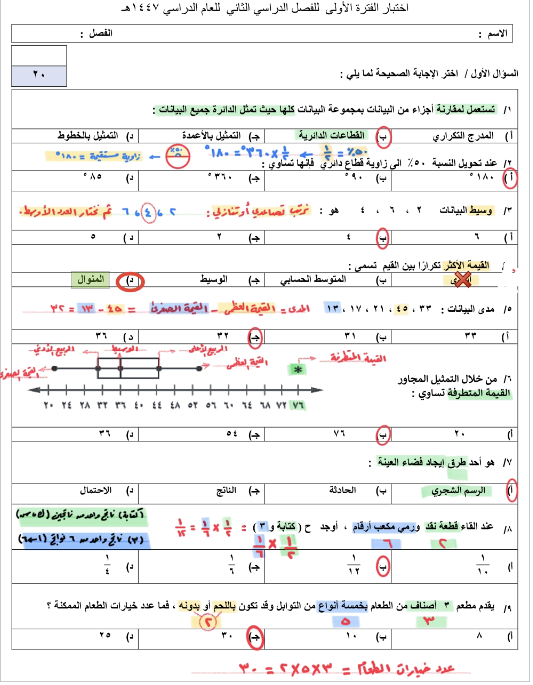 اختبار الفترة الأولى للفصل الدراسي الثاني للعام الدراسي ١٤٤٧هـ
الاسم : الفصل :
٢٠
السؤال الأول / اختر الإجابة الصحيحة لما يلي :
١/ تستعمل لمقارنة أجزاء من البيانات بمجموعة البيانات كلها حيث تمثل الدائرة جميع البيانات :
أ) المدرج التكراري ب) القطاعات الدائرية جـ) التمثيل بالأعمدة د) التمثيل بالخطوط
٥٠٪ = ١/٢ ← ١/٢ × ٣٦٠° = ١٨٠° ٥٠٪ ← زاوية مستقيمة = ١٨٠°
٢/ عند تحويل النسبة ٥٠٪ الى زاوية قطاع دائري فإنها تساوي :
أ) ١٨٠° ب) ٩٠° جـ) ٣٦٠° د) ٨٥°
٣/ وسيط البيانات ٢ ، ٦ ، ٤ هو : نرتب تصاعدي أو تنازلي : ٢ ، ٤ ، ٦ ثم نختار العدد الأوسط.
أ) ٦ ب) ٤ جـ) ٢ د) ٥
القيمة الأكثر تكرارًا بين القيم تسمى :
ب) المتوسط الحسابي جـ) الوسيط د) المنوال
٥/ مدى البيانات : ٣٣ ، ٤٥ ، ٢١ ، ١٧ ، ١٣ المدى = القيمة العظمى - القيمة الصغرى = ٤٥ - ١٣ = ٣٢
أ) ٣٣ ب) ٣١ جـ) ٣٢ د) ٣٦
الربيع الأدنى الوسيط الربيع الأعلى
القيمة الصغرى القيمة العظمى القيمة المتطرفة
*
٦/ من خلال التمثيل المجاور
القيمة المتطرفة تساوي :
20 24 28 32 36 40 44 48 52 56 60 64 68 72 ٧٦
أ) ٢٠ ب) ٧٦ جـ) ٥٤ د) ٣٦
٧/ هو أحد طرق إيجاد فضاء العينة :
أ) الرسم الشجري ب) الحادثة جـ) الناتج د) الاحتمال
٨/ عند القاء قطعة نقد ورمي مكعب أرقام ، أوجد ح ( كتابة و ٣ ) = ١/٢ × ١/٦ = ١/١٢
٢ ٦ ١/٢ × ١/٦
(كتابة) ناتج واحد من ناتجين
(٣) ناتج واحد من ٦ نواتج (١-٦)
أ) ١/١٠ ب) ١/١٢ جـ) ١/٦ د) ١/٤
٩/ يقدم مطعم ٣ أصناف من الطعام بخمسة أنواع من التوابل وقد تكون باللحم أو بدونه ، فما عدد خيارات الطعام الممكنة ؟
٣ ٥ ٢
أ) ٨ ب) ١٠ جـ) ٣٠ د) ٢٥
عدد خيارات الطعام = ٣×٥×٢ = ٣٠